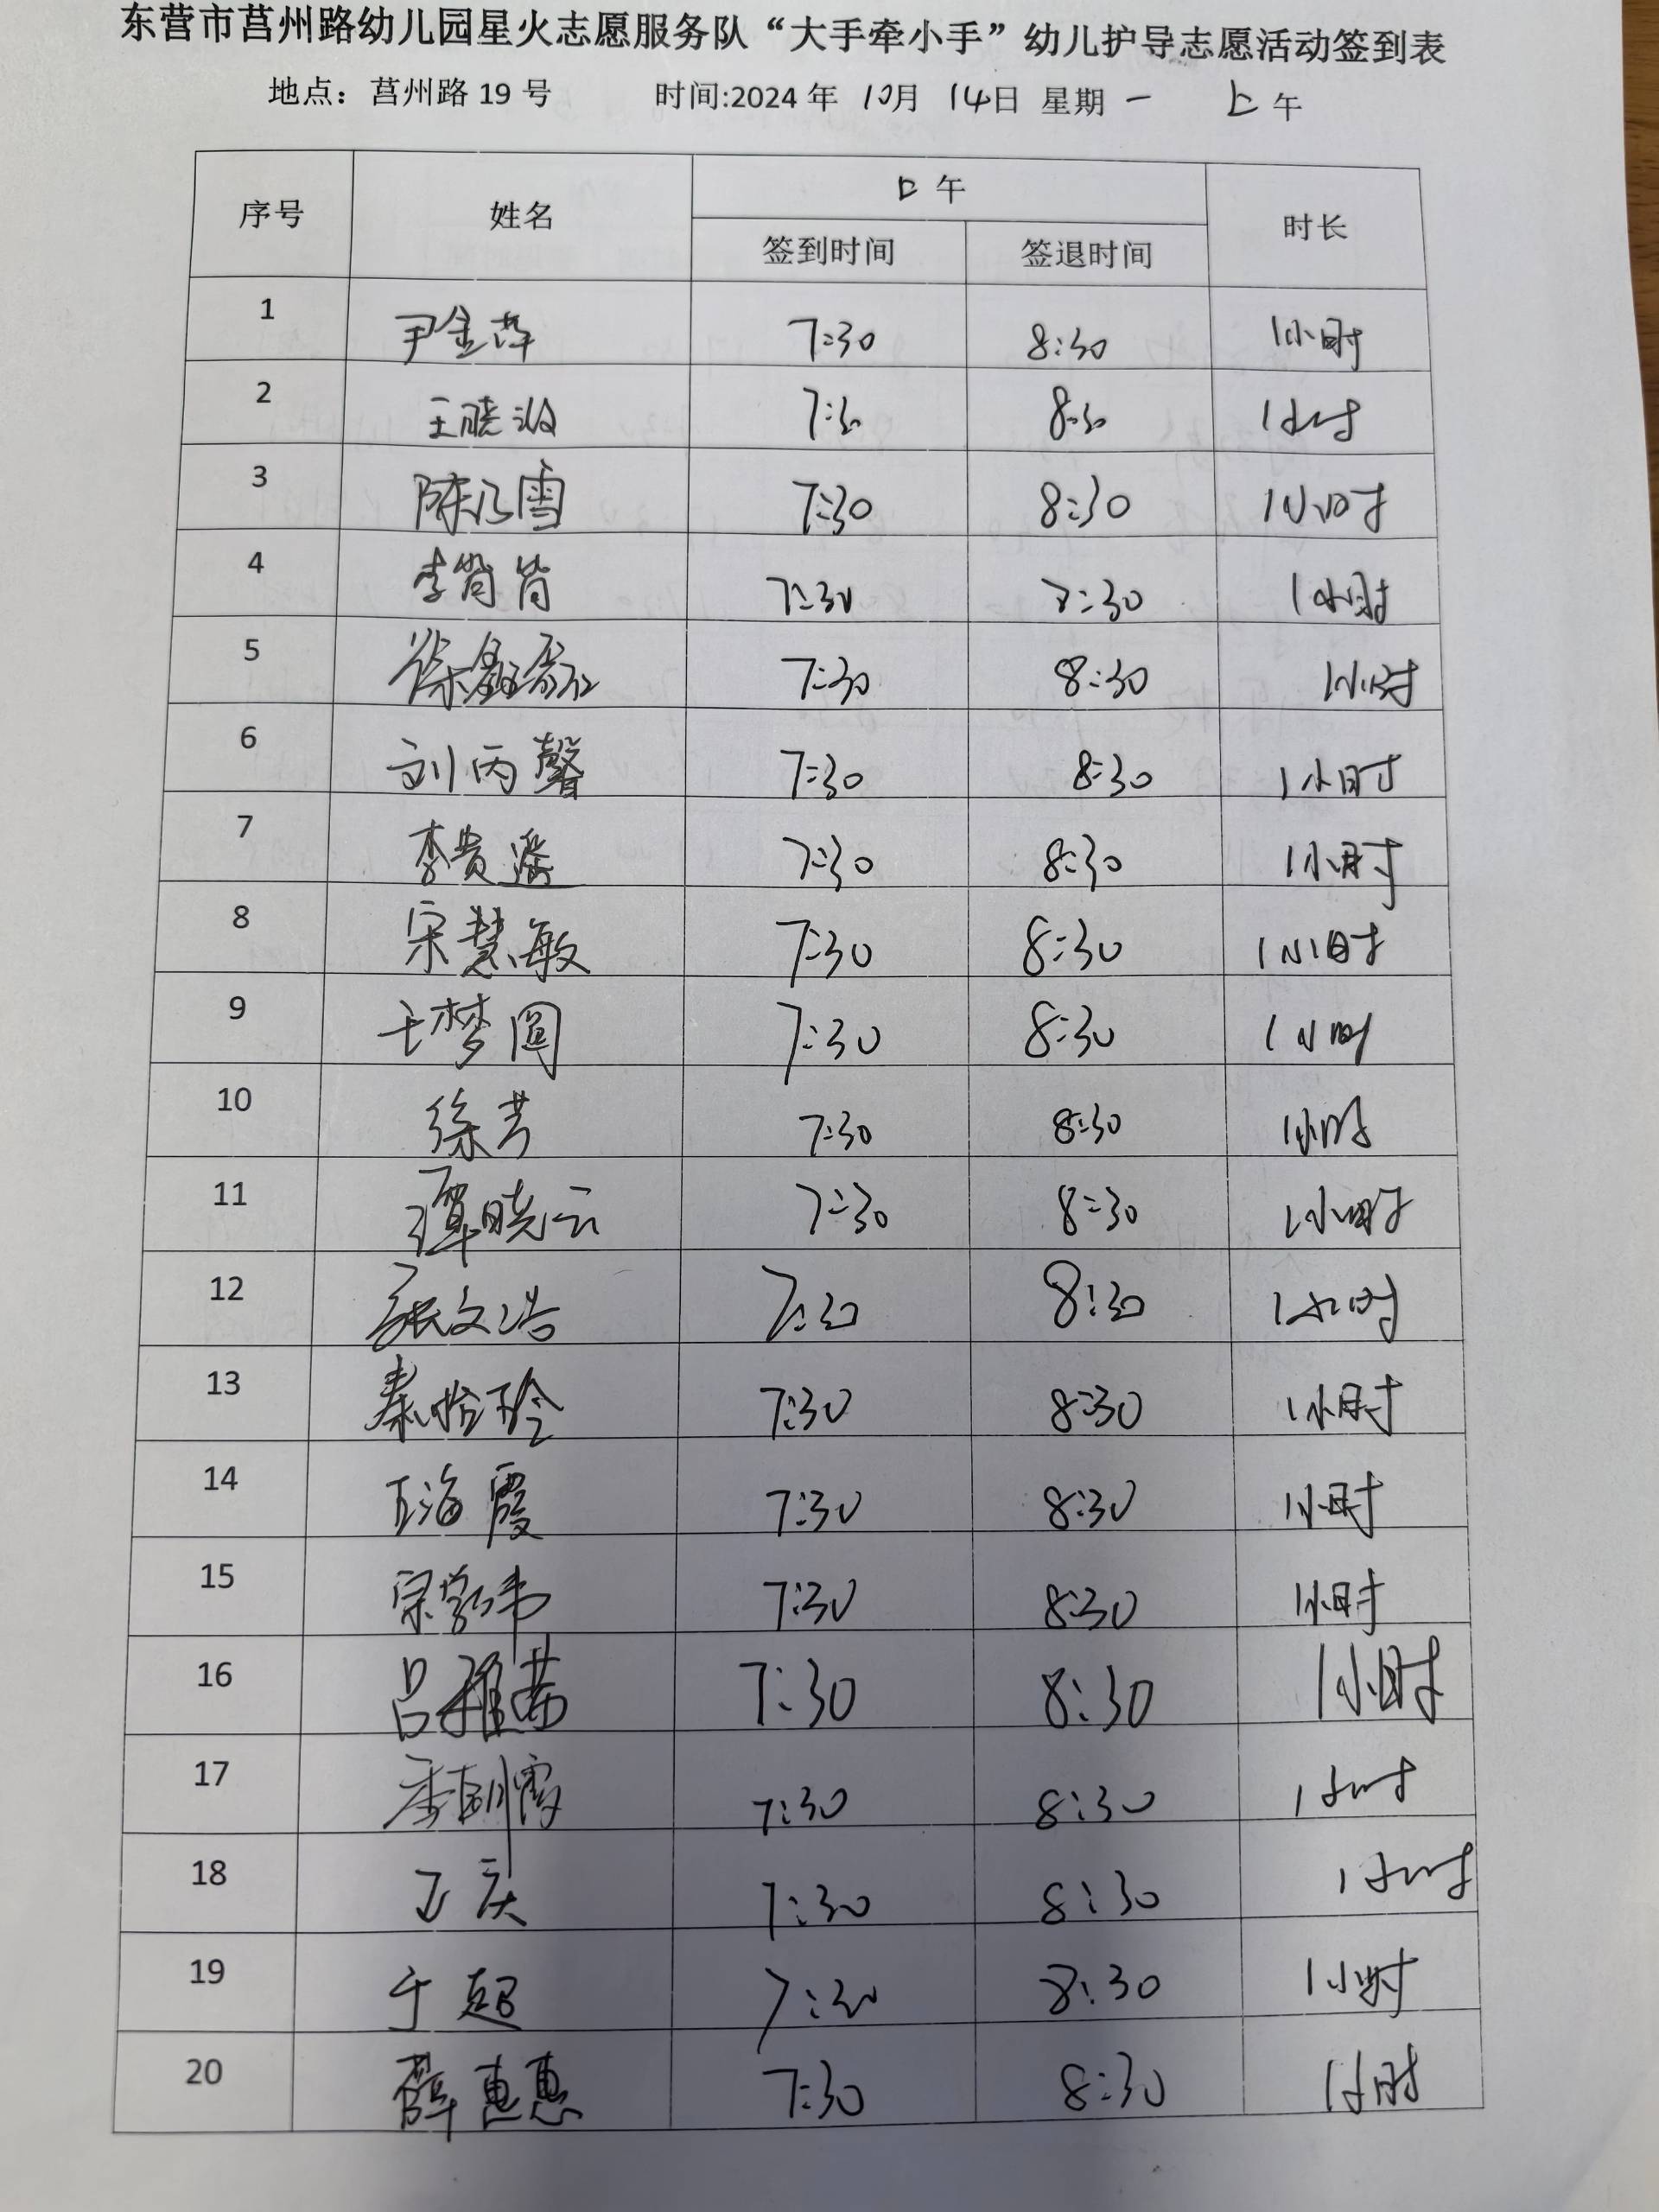 东营市莒州路幼儿园星火志愿服务队“大手牵小手”幼儿护导志愿活动签到表
地点：莒州路 19 号 时间:2024 年 10月 14日 星期 一 上 午
序号 姓名 上 午 时长
签到时间 签退时间
1 尹金萍 7:30 8:30 1小时
2 王晓波 7:30 8:30 1小时
3 陈乃雪 7:30 8:30 1小时
4 李筒筒 7:30 8:30 1小时
5 徐 7:30 8:30 1小时
6 刘丙馨 7:30 8:30 1小时
7 李贵 7:30 8:30 1小时
8 宋慧敏 7:30 8:30 1小时
9 王梦圆 7:30 8:30 1小时
10 徐芳 7:30 8:30 1小时
11 谭晓云 7:30 8:30 1小时
12 张文浩 7:30 8:30 1小时
13 秦怡玲 7:30 8:30 1小时
14 王海霞 7:30 8:30 1小时
15 7:30 8:30 1小时
16 吕雅茜 7:30 8:30 1小时
17 霞 7:30 8:30 1小时
18 王庆 7:30 8:30 1小时
19 于超 7:30 8:30 1小时
20 薛惠惠 7:30 8:30 1小时